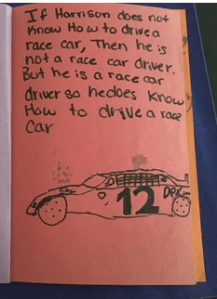 If Harrison does not
Know How to drive a
race car, Then he is
not a race car driver.
But he is a race car
driver so he does know
How to drive a race
Car
12